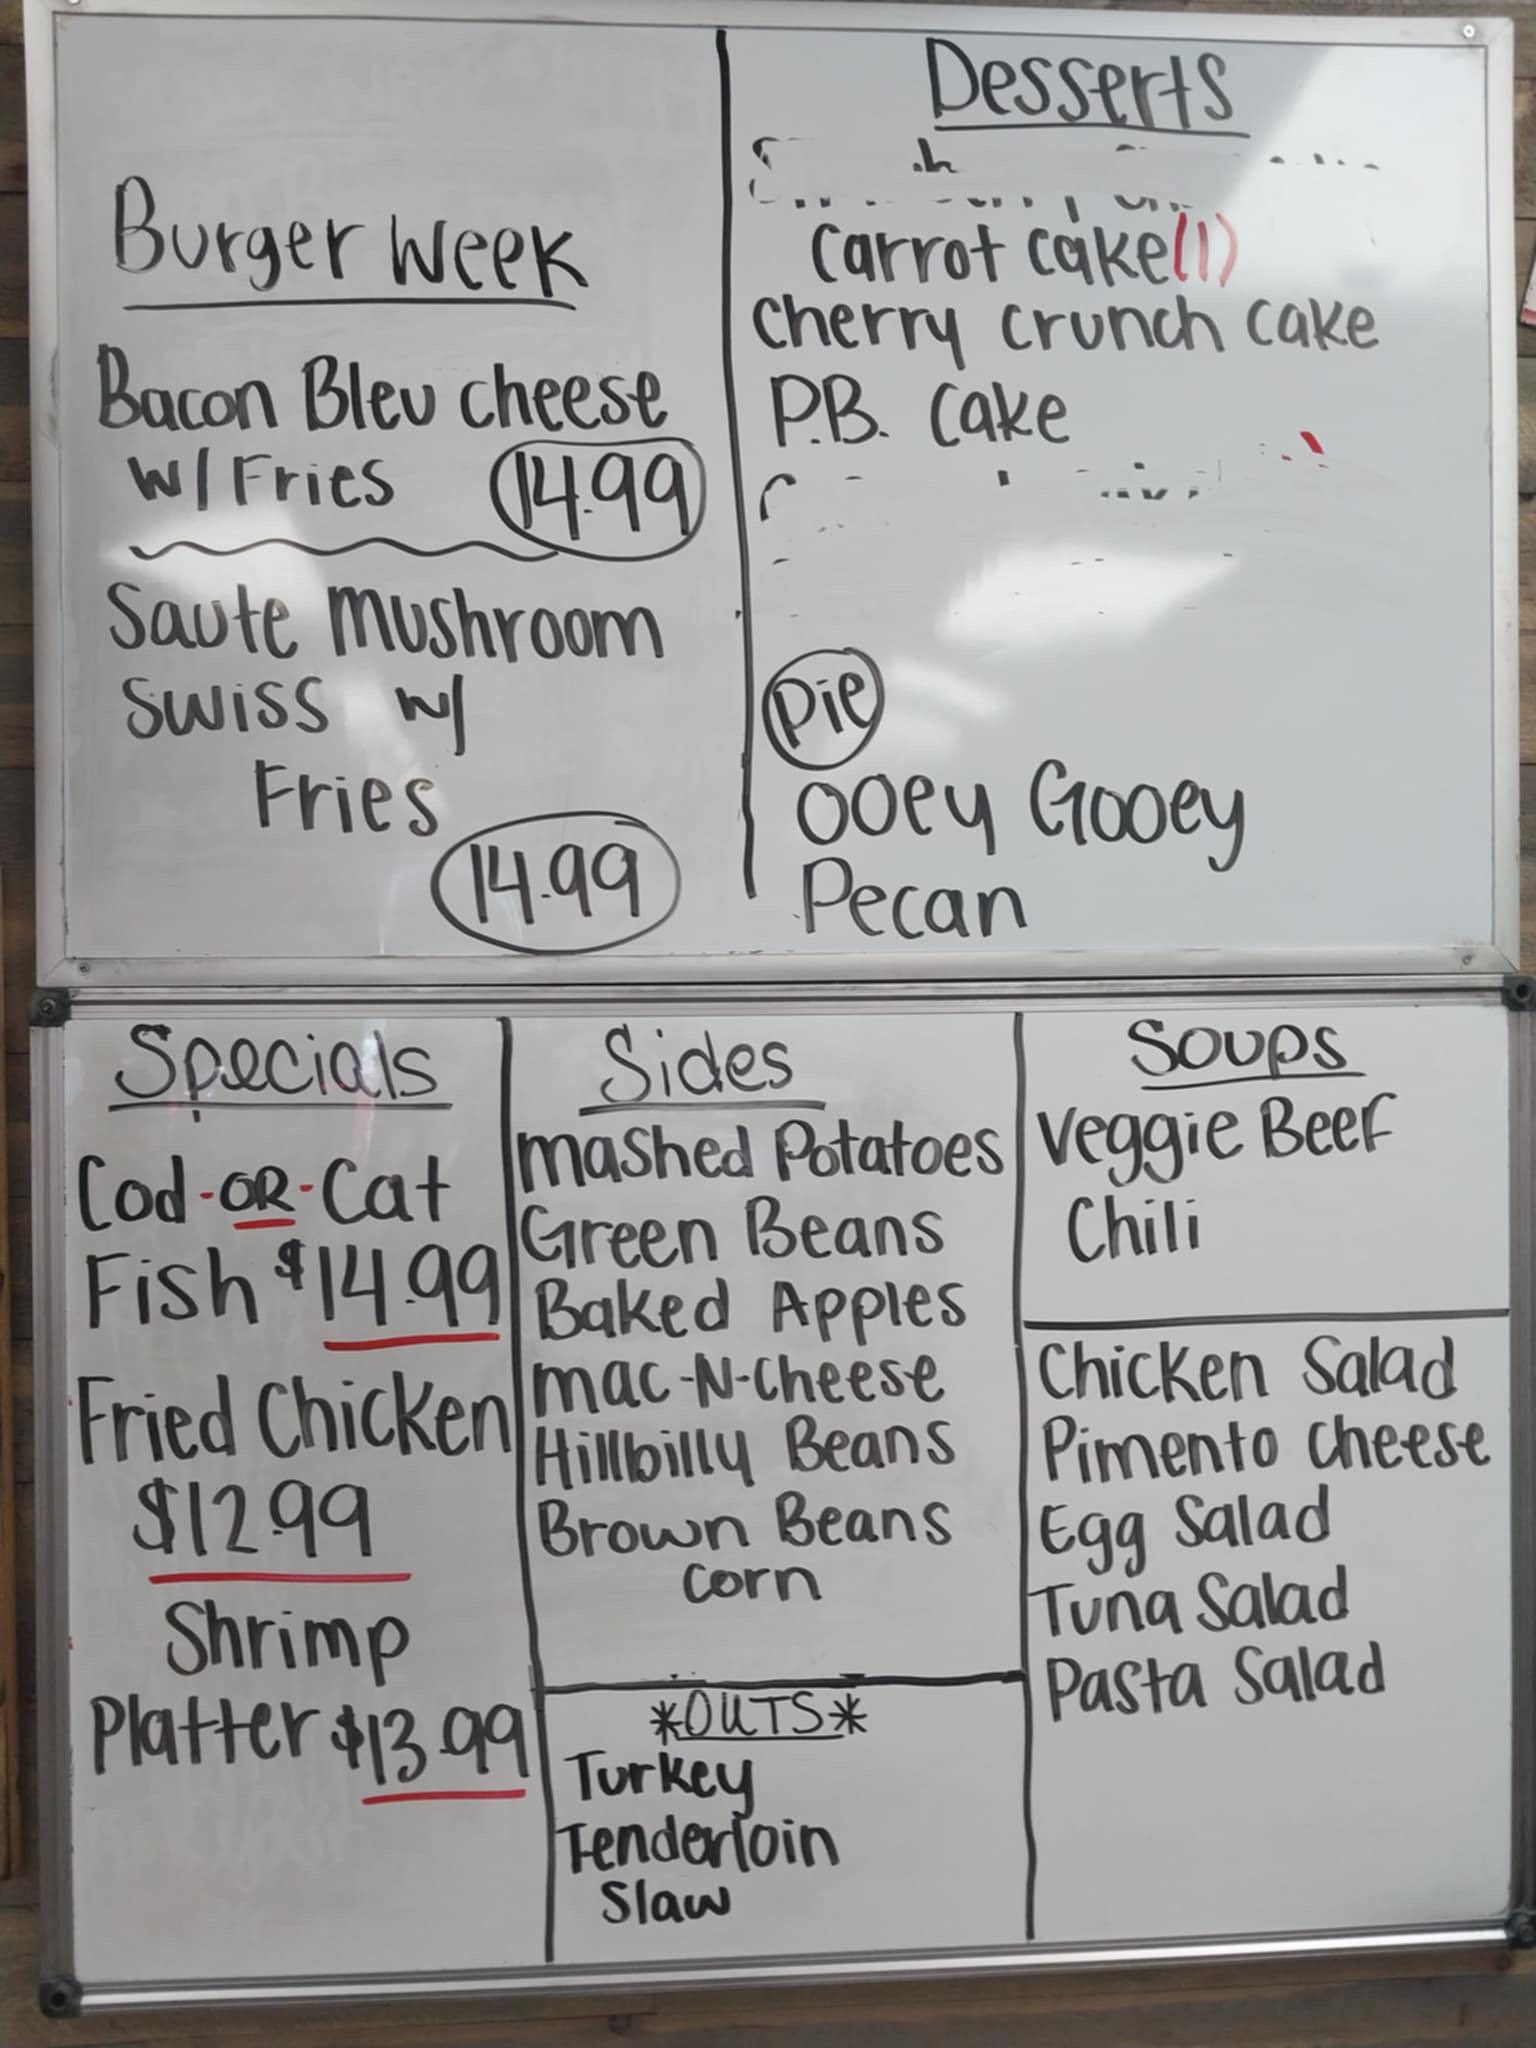 Burger Week
Bacon Bleu cheese
w/ Fries 14.99
Saute Mushroom
Swiss w/
Fries
14.99
Desserts
Carrot Cake (1)
Cherry Crunch Cake
P.B. Cake
Pie
Ooey Gooey
Pecan
Specials
Cod -OR- Cat
Fish $14.99
Fried Chicken
$12.99
Shrimp
Platter $13.99
Sides
Mashed Potatoes
Green Beans
Baked Apples
Mac-N-Cheese
Hillbilly Beans
Brown Beans
Corn
*OUTS*
Turkey
Tenderloin
Slaw
Soups
Veggie Beef
Chili
Chicken Salad
Pimento Cheese
Egg Salad
Tuna Salad
Pasta Salad